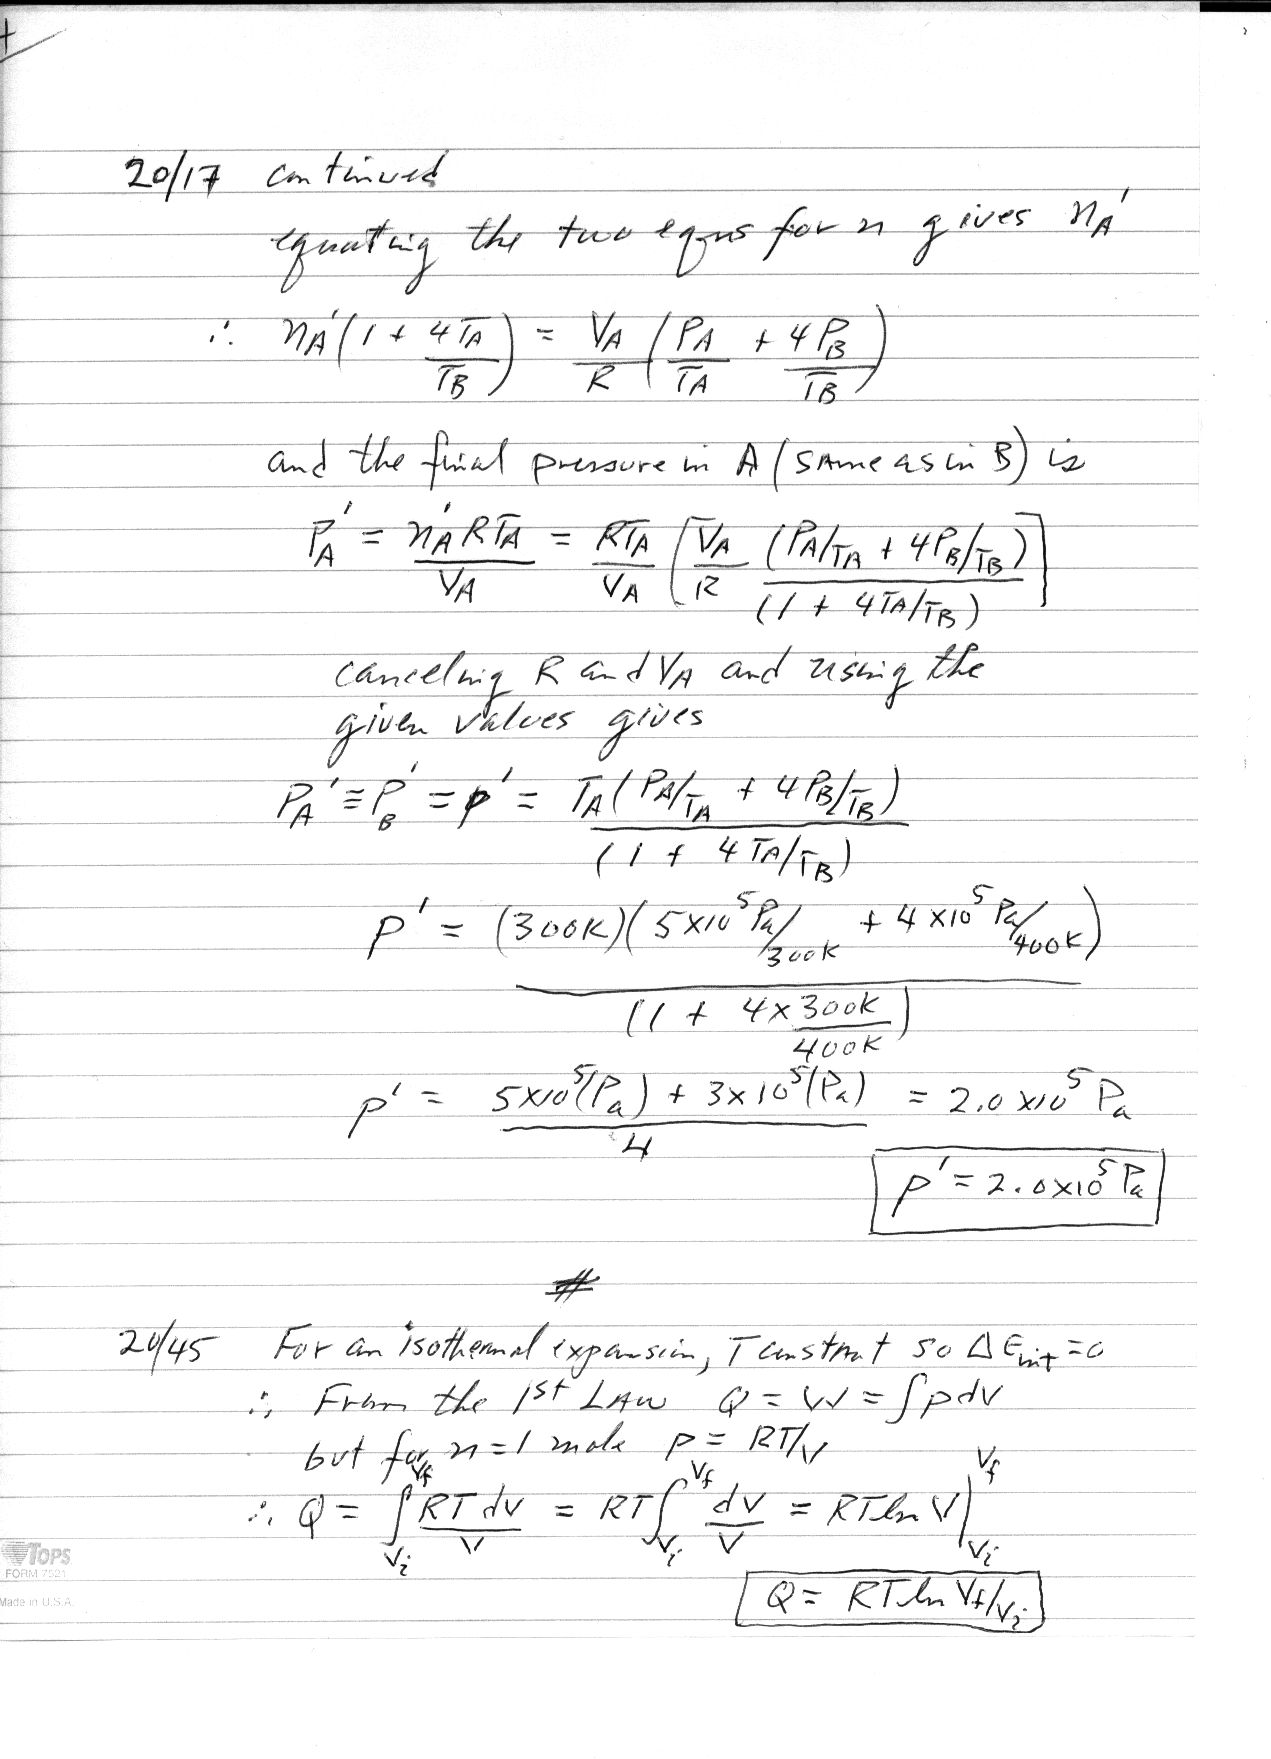 20/17 continued
equating the two eqns for n gives nA'
∴ nA'(1 + 4TA/TB) = VA/R (PA/TA + 4PB/TB)
and the final pressure in A (SAME as in B) is
PA' = nA'RTA/VA = RTA/VA [VA/R (PA/TA + 4PB/TB)/(1 + 4TA/TB)]
canceling R and VA and using the
given values gives
PA' ≡ PB' = p' = TA(PA/TA + 4PB/TB)/(1 + 4TA/TB)
p' = (300K)(5x10^5 Pa/300K + 4x10^5 Pa/400K)/(1 + 4x300K/400K)
p' = 5x10^5(Pa) + 3x10^5(Pa)/4 = 2.0x10^5 Pa
p' = 2.0x10^5 Pa
#
20/45 For an isothermal expansion, T constant so ΔEint = 0
∴ From the 1st LAW Q = W = ∫pdV
but for n=1 mole p = RT/V
∴ Q = ∫Vi^Vf RTdV/V = RT∫Vi^Vf dV/V = RT ln V|Vi^Vf
Q = RT ln Vf/Vi
TOPS
FORM 7521
Made in U.S.A.